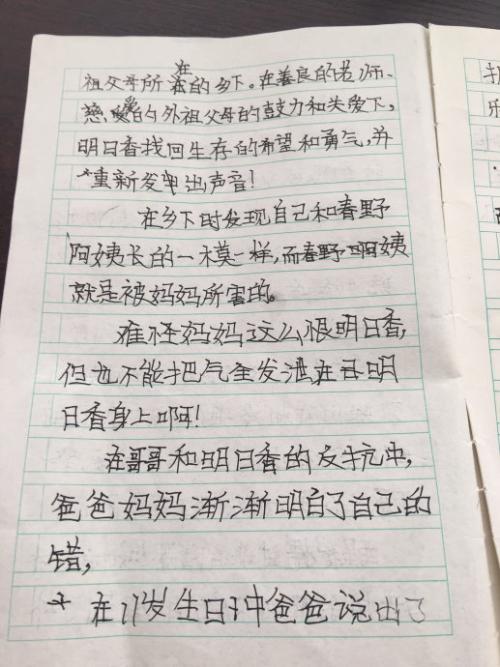 祖父母所在的乡下。在善良的老师、
慈爱的外祖父母的鼓力和关爱下，
明日香找回生存的希望和勇气，并
重新发出声音！
在乡下时发现自己和春野
阿姨长的一模一样，而春野阿姨
就是被妈妈所害的。
难怪妈妈这么恨明日香，
但也不能把气全发泄在明
日香身上啊！
在哥哥和明日香的反抗中，
爸爸妈妈渐渐明白了自己的
错，
在11岁生日中爸爸说出了